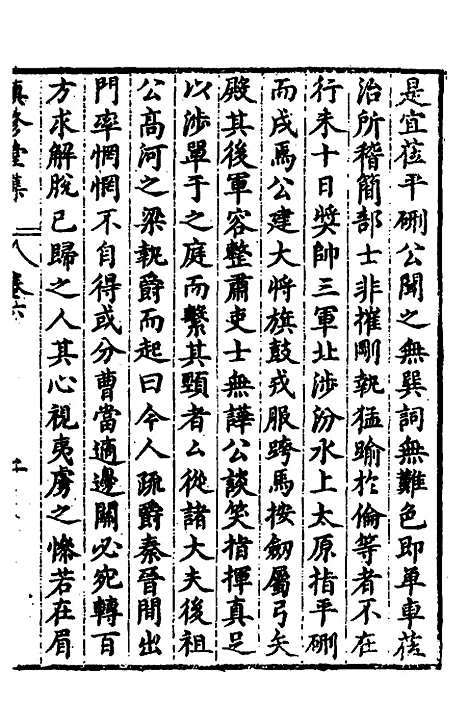 是宜莅平硎公聞之無巽詞無難色即單車莅
治所稽簡部士非摧剛執猛踰於倫等者不在
行未十日奬帥三軍北涉汾水上太原指平硎
而戍馬公建大將旗鼓戎服跨馬按劒屬弓矢
殿其後軍容整肅吏士無譁公談笑指揮真足
以涉單于之庭而繫其頸者厶從諸大夫後祖
公高河之梁執爵而起曰今人疏爵秦晉間出
門率惘惘不自得或分曹當適邊關必宛轉百
方求解脫已歸之人其心視夷虜之慘若在眉
真修堂集 卷六